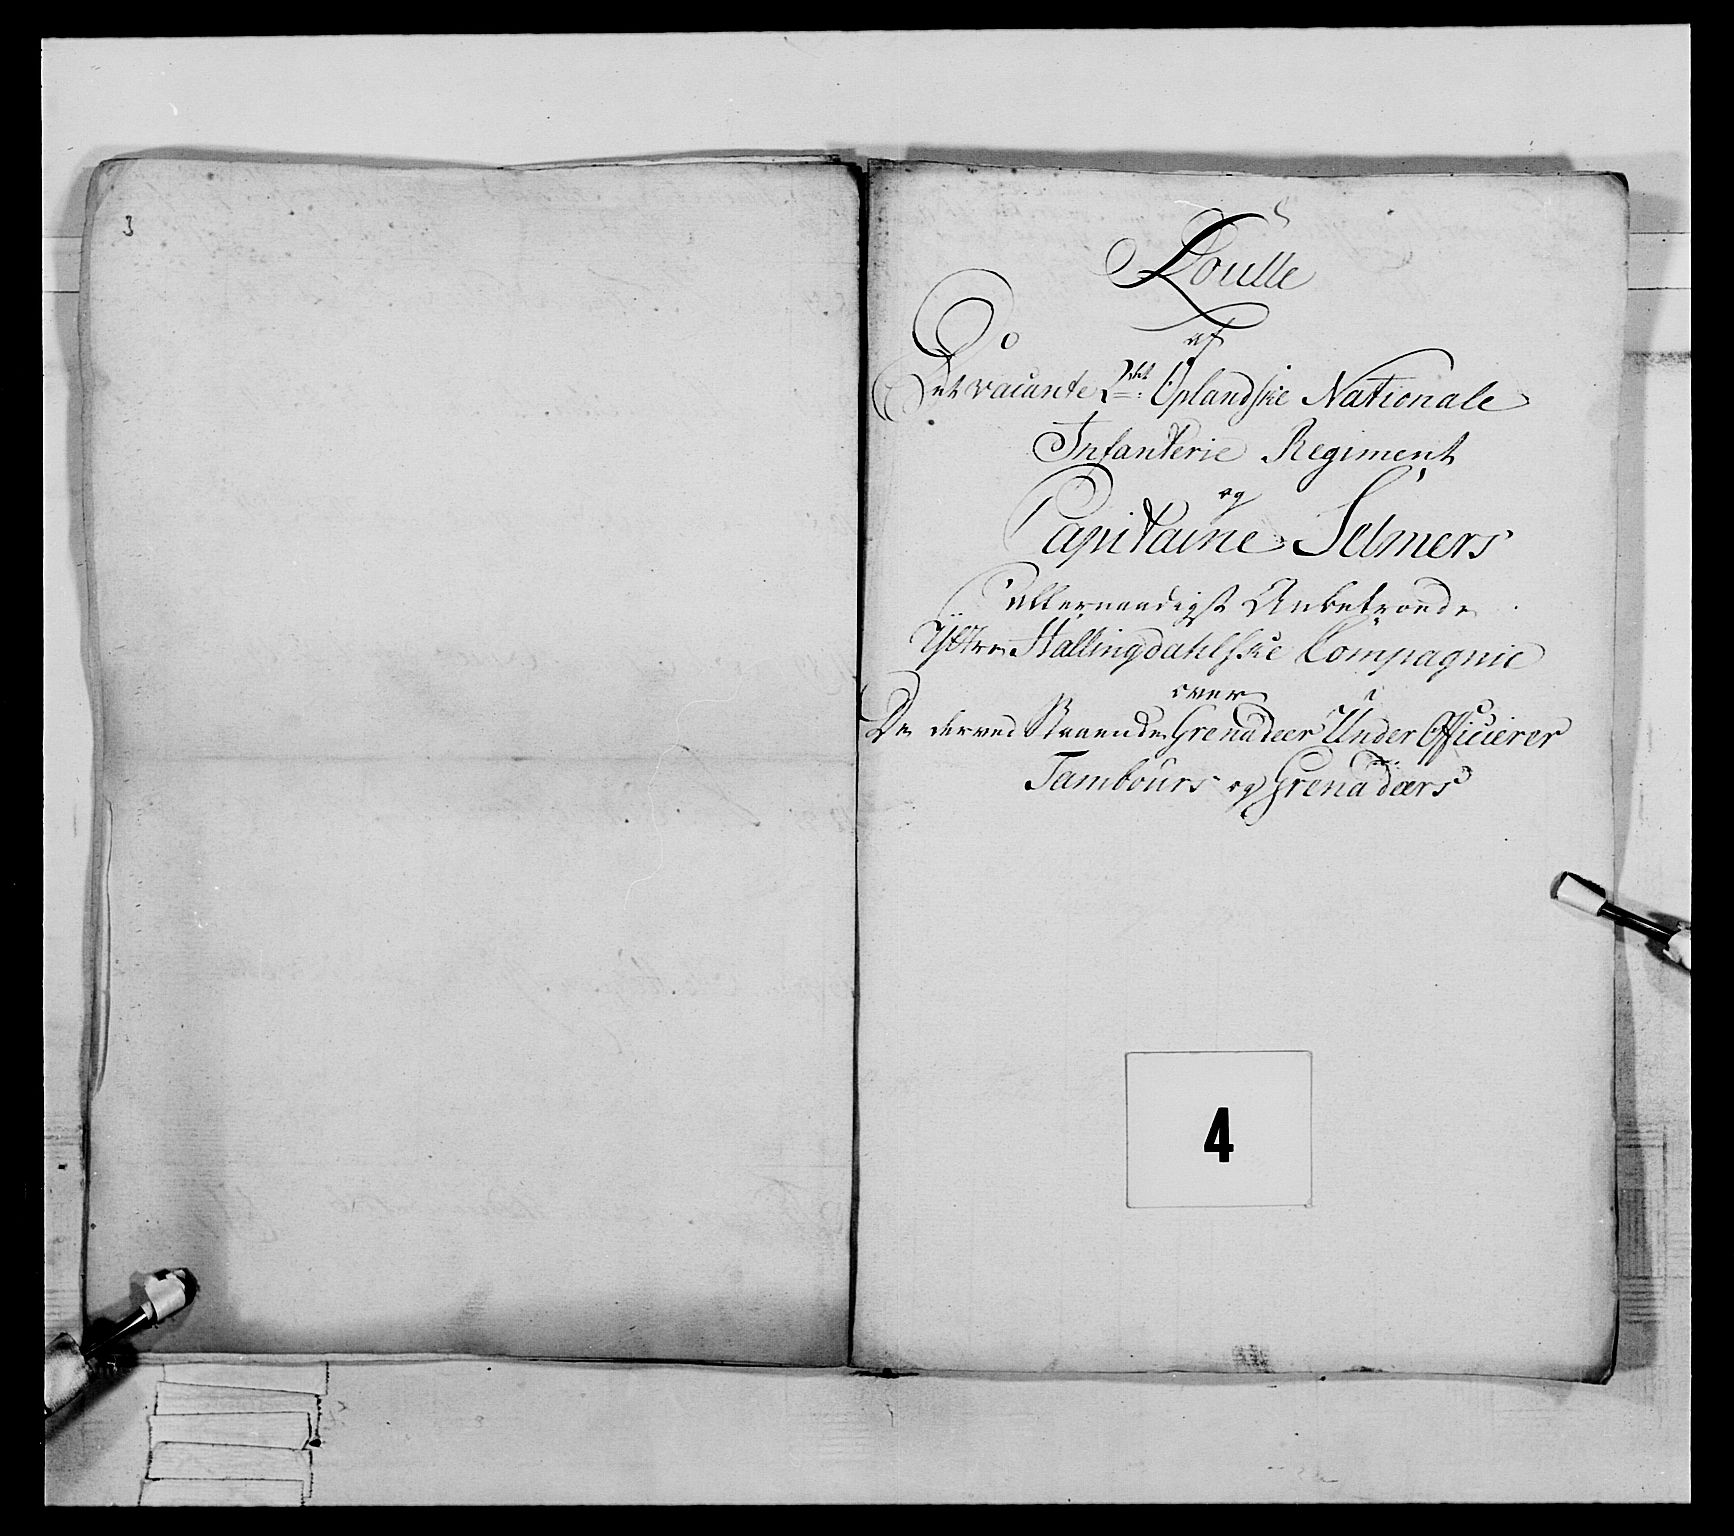 3
Roulle
af
Det vacante 2det Oplandske Nationale
Infanterie Regiment
og
Capitaine Selmers
allernaadigst Anbetroede
Ÿttre Hallingdahlske Compagnie
over
De derved Staaende Grenadeer Under Officierer
Tambours og Grenadeers
4